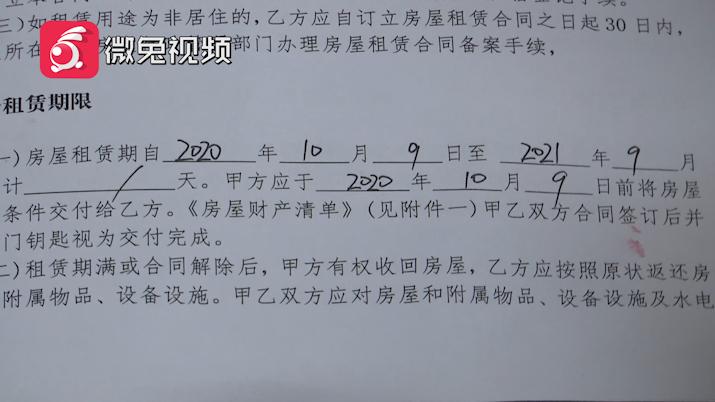 三)如租赁用途为非居住的,乙方应自订立房屋租赁合同之日起30日内,
所在 部门办理房屋租赁合同备案手续,
微兔视频
租赁期限
一)房屋租赁期自 2020 年 10 月 9 日至 2021 年 9 月
计 / 天。甲方应于 2020 年 10 月 9 日前将房屋
条件交付给乙方。《房屋财产清单》(见附件一)甲乙双方合同签订后并
门钥匙视为交付完成。
二)租赁期满或合同解除后,甲方有权收回房屋,乙方应按照原状返还房
附属物品、设备设施。甲乙双方应对房屋和附属物品、设备设施及水电